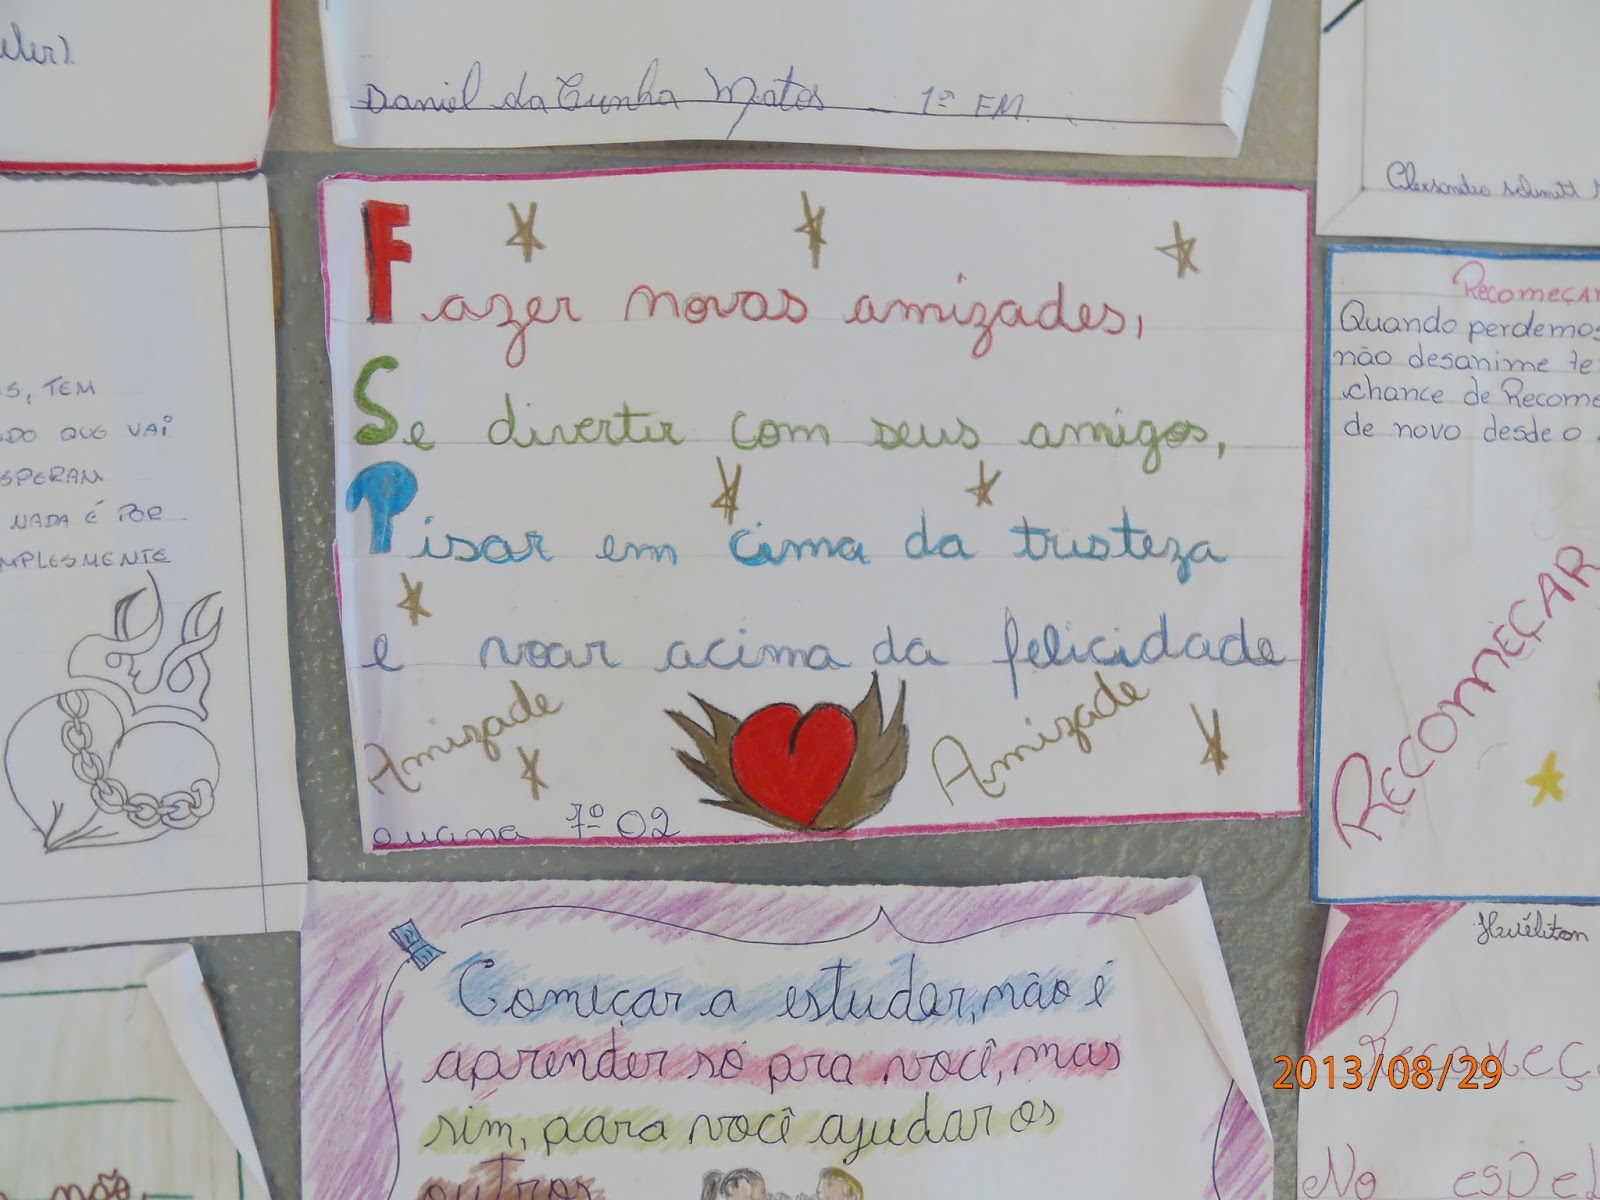 Daniel da Cunha Matos 1º EM.
Fazer novas amizades,
Se divertir com seus amigos,
Pisar em cima da tristeza
e voar acima da felicidade
Amizade
Amizade
7º 02
S, TEM
QUE VAI
NADA É POR
Recomeçar
Quando perdemos
não desanime te
chance de Recome
de novo desde o
RECOMEÇAR
Começar a estudar, não é
aprender só pra você, mas
sim, para você ajudar os
outros
não,
Recomeç
No
2013/08/29